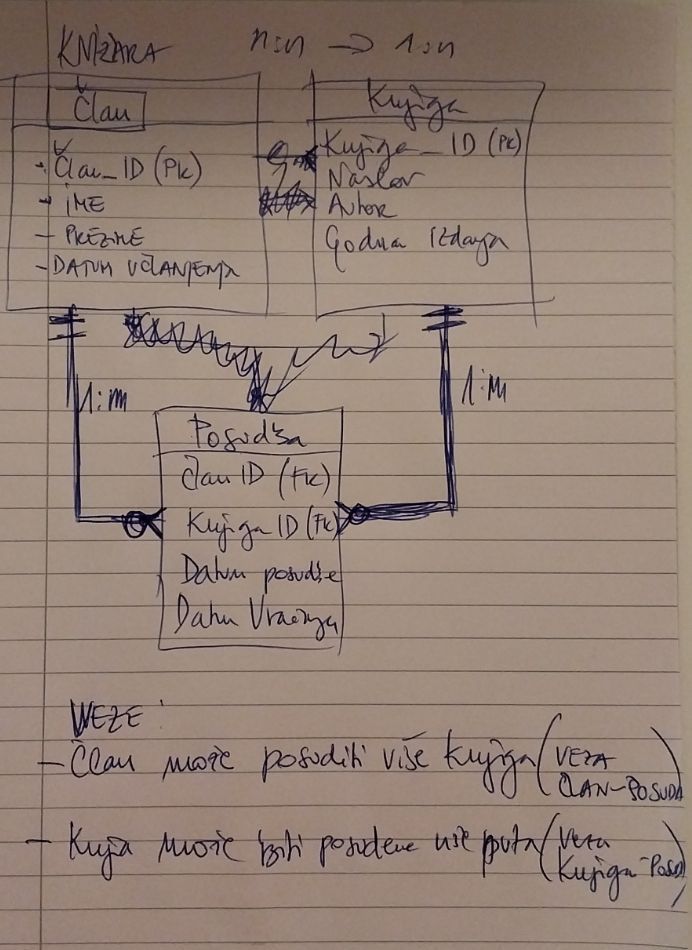 KNJIŽARA n:n → 1:n
Član
Član_ID (PK)
- IME
- PREZIME
- DATUM UČLANJENJA
Knjiga
Knjiga_ID (PK)
Naslov
Autor
Godina Izdanja
1:m
1:m
Posudba
Član ID (FK)
Knjiga ID (FK)
Datum posudbe
Datum Vraćanja
VEZE:
- Član može posuditi više Knjiga (VEZA
ČLAN-POSUDBA)
- Knjiga može biti posuđena više puta (Veza
Knjiga-Posudba)